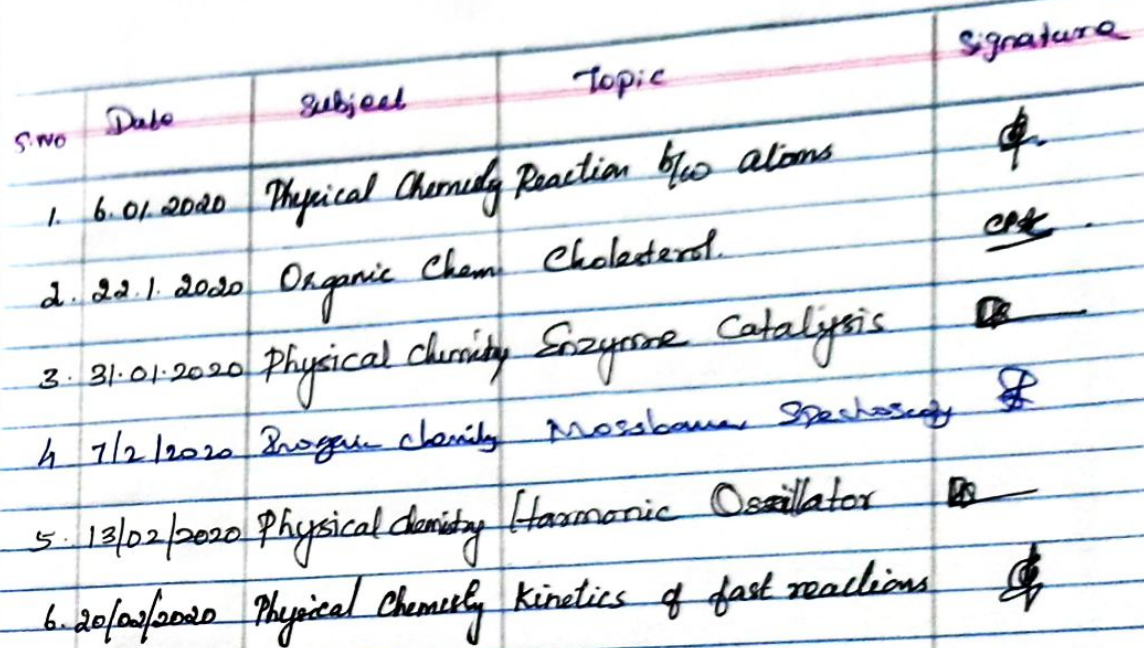 S.NO Date Subject Topic Signature
1. 6.01.2020 Physical Chemistry Reaction b/w atoms
2. 22.1.2020 Organic Chem Cholesterol.
3. 31.01.2020 Physical Chemistry Enzyme Catalysis
4 7/2/2020 Inorganic chemistry Mossbauer Spectroscopy
5. 13/02/2020 Physical chemistry Harmonic Ossillator
6. 20/02/2020 Physical Chemistry Kinetics of fast reactions